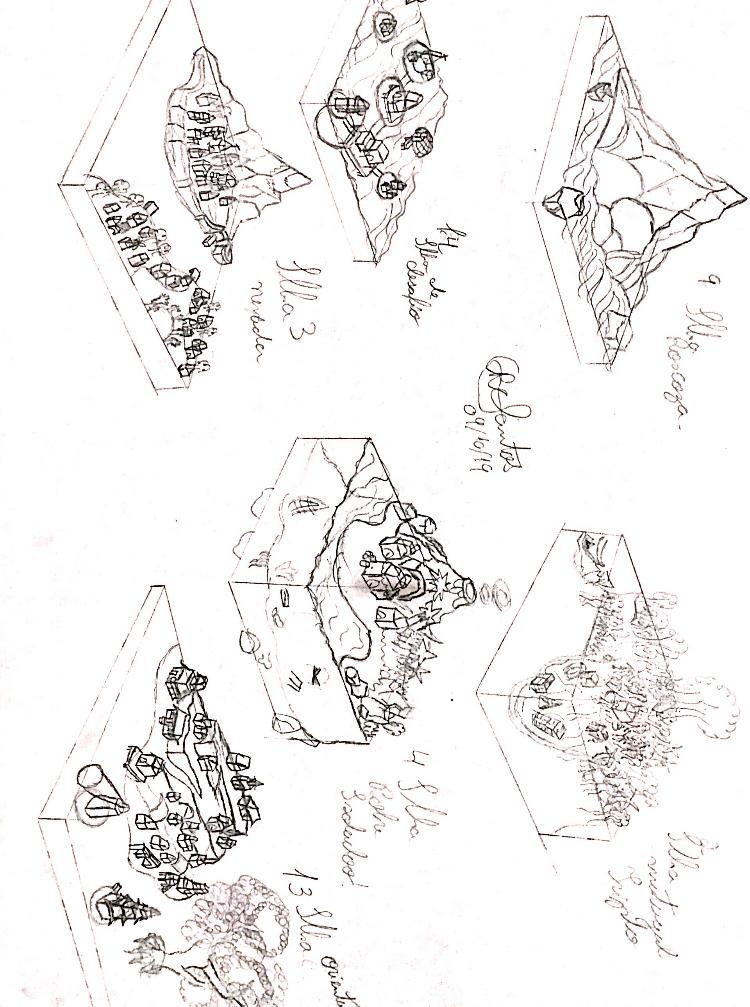 9 Ilha
Rocoza
Ilha
matagal
Tripto
CRCSantos
09/10/19
14
Ilha de
desafio
4 Ilha
Pobre
Isoladoo!
Ilha 3
nevada
13 Ilha oriental